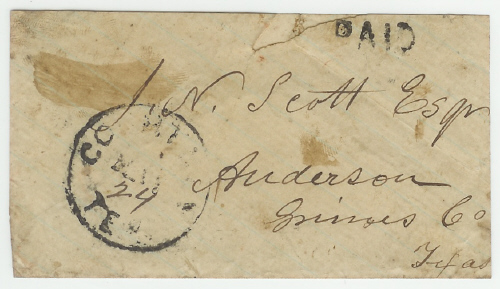 PAID
J. N. Scott Esqr
24
Anderson
Grimes Co
Texas